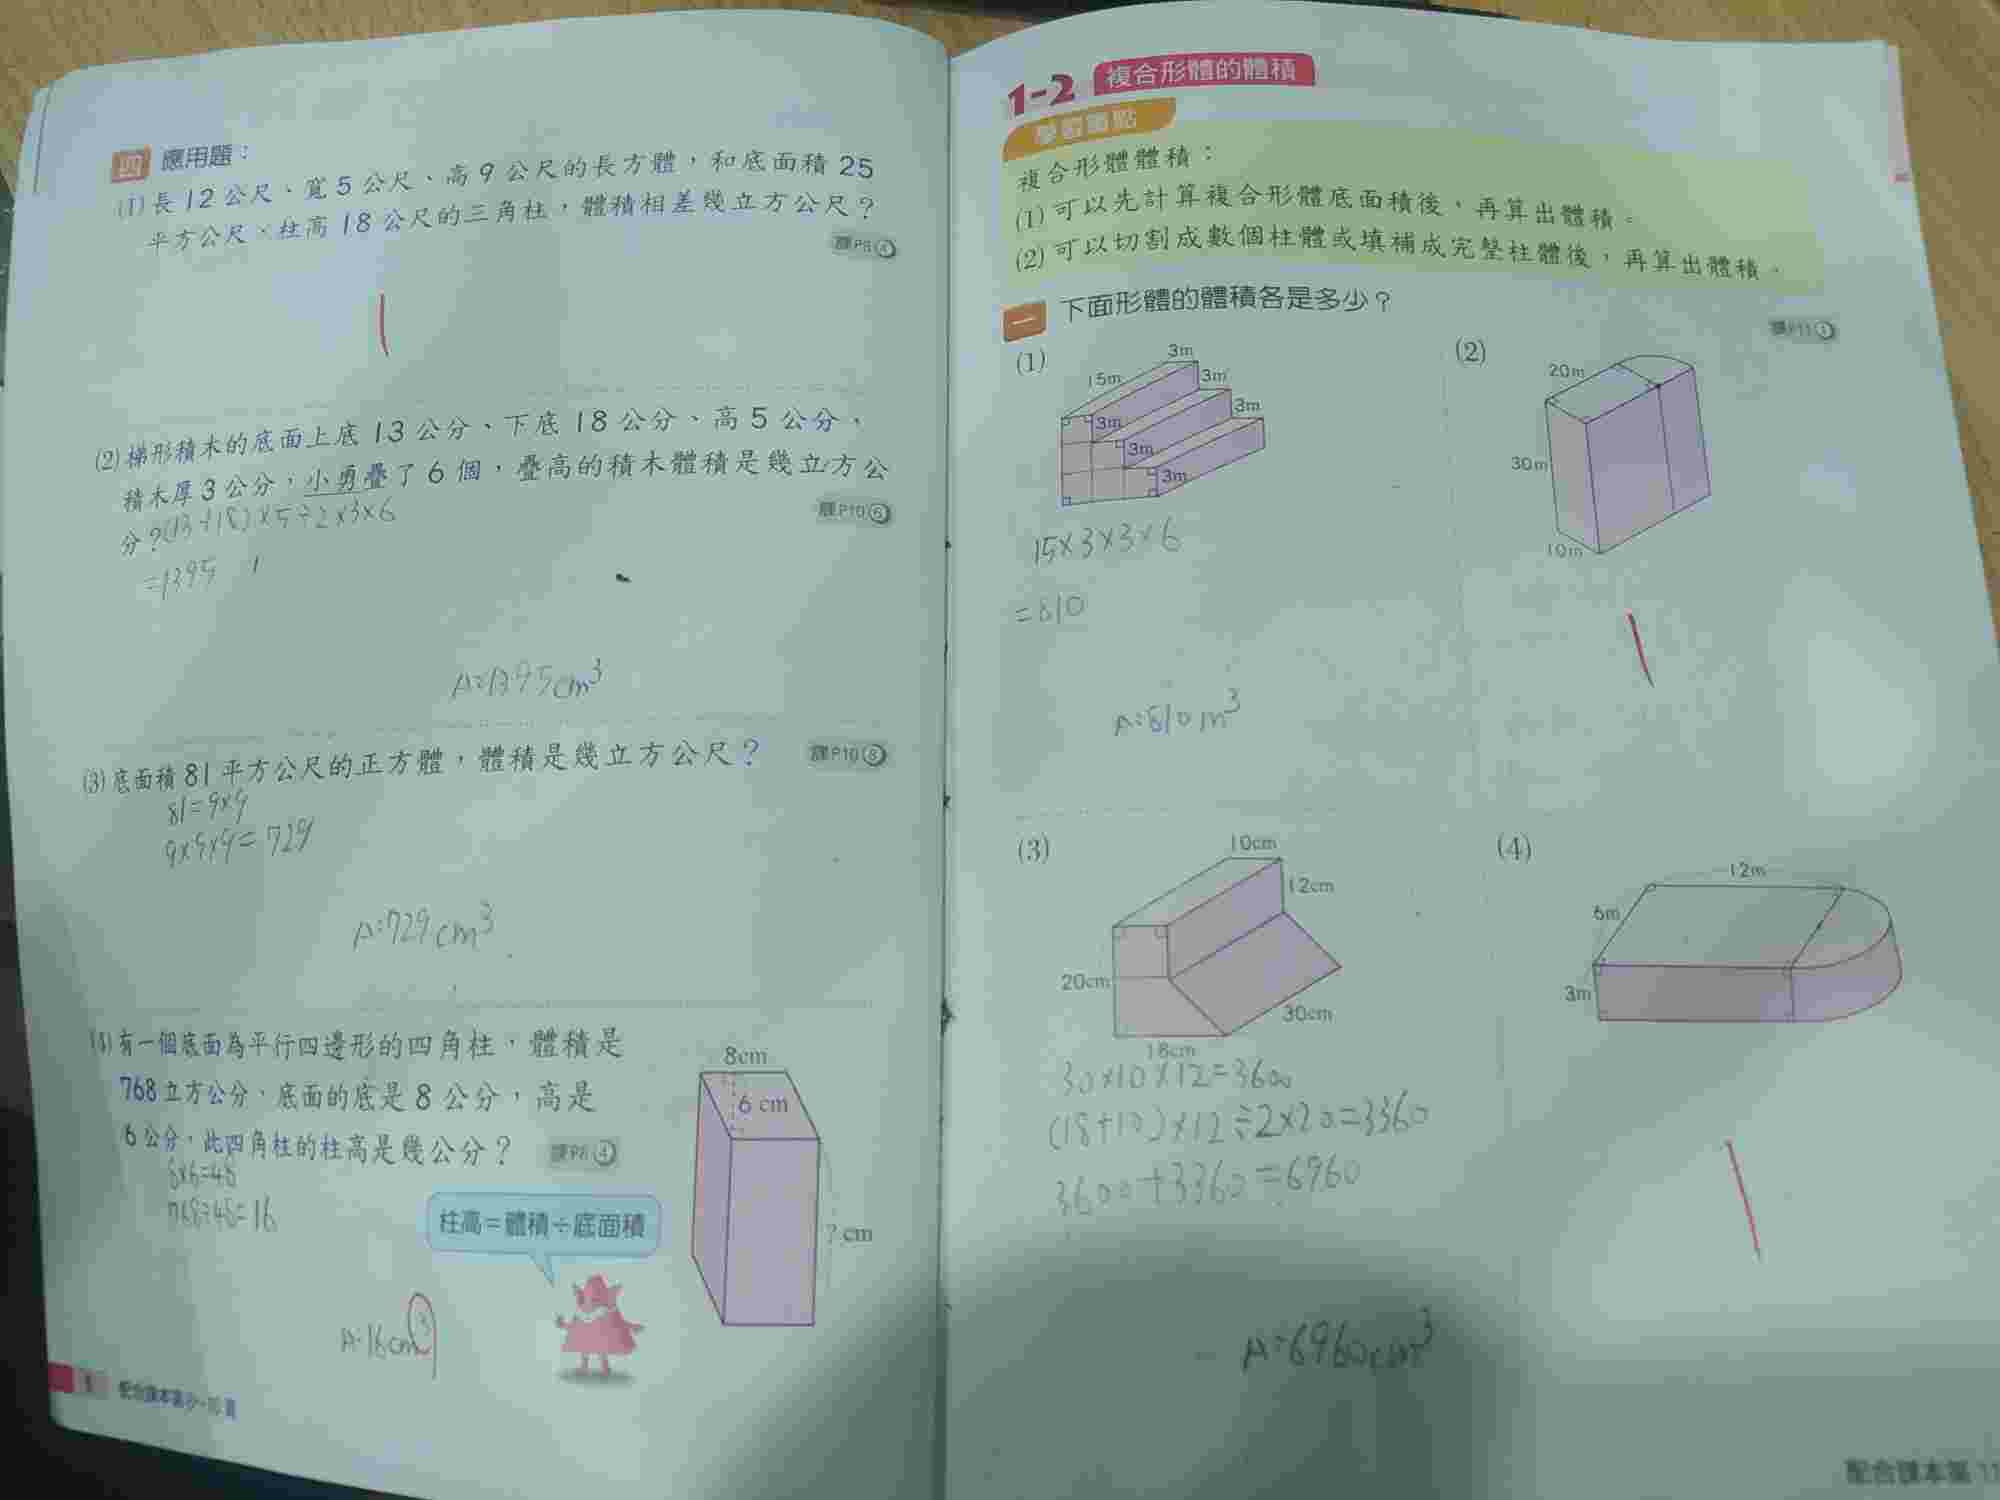 四 應用題：
(1)長12公尺、寬5公尺、高9公尺的長方體，和底面積25
平方公尺、柱高18公尺的三角柱，體積相差幾立方公尺？
課P8④
(2)梯形積木的底面上底13公分、下底18公分、高5公分，
積木厚3公分，小勇疊了6個，疊高的積木體積是幾立方公
分？(13+18)×5÷2×3×6
課P10⑥
=1395
A=1395cm³
(3)底面積81平方公尺的正方體，體積是幾立方公尺？
課P10⑧
81=9×9
9×9×9=729
A:729cm³
(4)有一個底面為平行四邊形的四角柱，體積是
768立方公分，底面的底是8公分，高是
6公分，此四角柱的柱高是幾公分？
課P8④
8×6=48
768÷48=16
8cm
6 cm
? cm
柱高＝體積÷底面積
A:16cm³
1-2 複合形體的體積
學習重點
複合形體體積：
(1)可以先計算複合形體底面積後，再算出體積。
(2)可以切割成數個柱體或填補成完整柱體後，再算出體積。
一 下面形體的體積各是多少？
課P11①
(1)
3m
15m
3m
3m
3m
3m
3m
15×3×3×6
=810
A:810m³
(2)
20m
30m
10m
(3)
10cm
12cm
20cm
30cm
18cm
30×10×12=3600
(18+10)×12÷2×20=3360
3600+3360=6960
A:6960cm³
(4)
12m
6m
3m
配合課本第 11